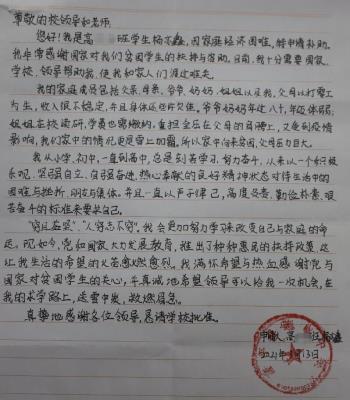 尊敬的校领导和老师:
您好!我是高 班学生杨 鑫,因家庭经济困难,特申请补助。
我非常感谢国家对我们贫困学生的扶持与资助。目前,我十分需要国家、
学校、领导帮助我,使我和家人们渡过难关。
我的家庭成员包括父亲、母亲、爷爷、奶奶、姐姐以及我,父母以打零工
为生,收入很不稳定,并且身体还些许欠佳,爷爷奶奶年近八十,年迈体弱;
姐姐在校读研,学费也需缴纳,重担全压在父母的肩膀上,又受到疫情
影响,我们家中的情况更是雪上加霜,所以家中向来贫困,父母压力巨大。
我从小学、初中,一直到高中,总是刻苦学习,努力奋斗,从来以一个积极
乐观、坚强自立、自强奋进、热心奉献的良好精神状态对待生活中的
困难与挫折、朋友与集体。并且一直以严于律己,高度负责、勤俭朴素、艰
苦奋斗的标准来要求自己。
"穷且益坚","人穷志不穷"。我会更加努力学习来改变自己与家庭的命
运。现如今,党和国家大力发展教育,推出了种种惠民的扶持政策,这
让我生活的希望的火苗愈燃愈烈,我满怀希望与热血感谢党与
国家对贫困学生的关心,并真诚地希望领导可以给我一次机会,在
我的求学路上,送雪中炭,救燃眉急。
真挚地感谢各位领导,恳请学校批准。
申请人:高 班杨 鑫
2021年 月13日